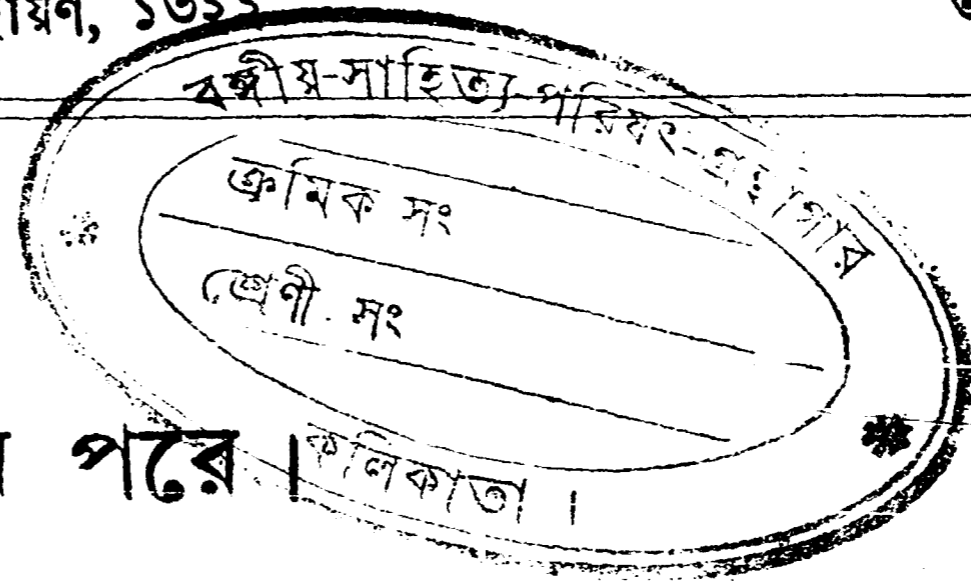 ১৩২২
বঙ্গীয়-সাহিত্য-পরিষৎ-গ্রন্থাগার
ক্রমিক সং
শ্রেণী সং
পরে ।
কলিকাতা ।